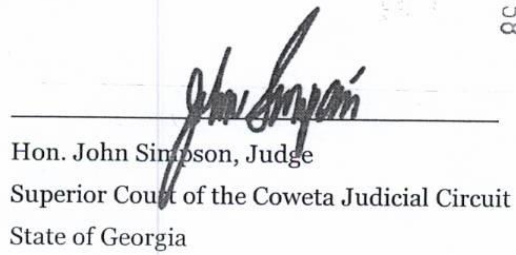 John Simpson
Hon. John Simpson, Judge
Superior Court of the Coweta Judicial Circuit
State of Georgia